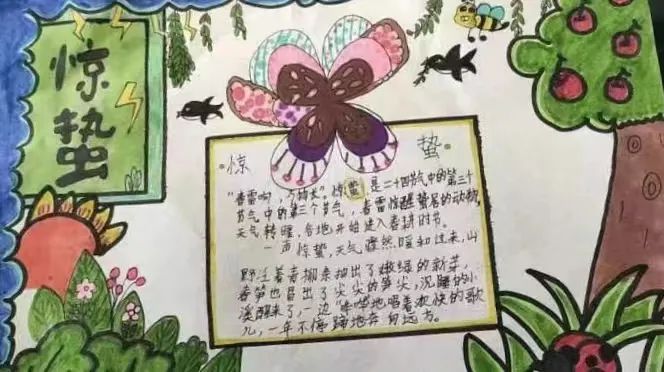 惊蛰
惊 蛰
"春雷响,万物长"。惊蛰是二十四节气中的第三十
节气中的第三个节气,春雷惊醒蛰居的动物,
天气转暖,各地开始进入春耕时节。
一声惊蛰,天气骤然暖和过来,山
野泛着青柳条抽出了嫩绿的新芽,
春笋也冒出了尖尖的笋尖,沉睡的小
溪醒来了,一边哗哗地唱着欢快的歌
儿,一年不停蹄地奔向远方。